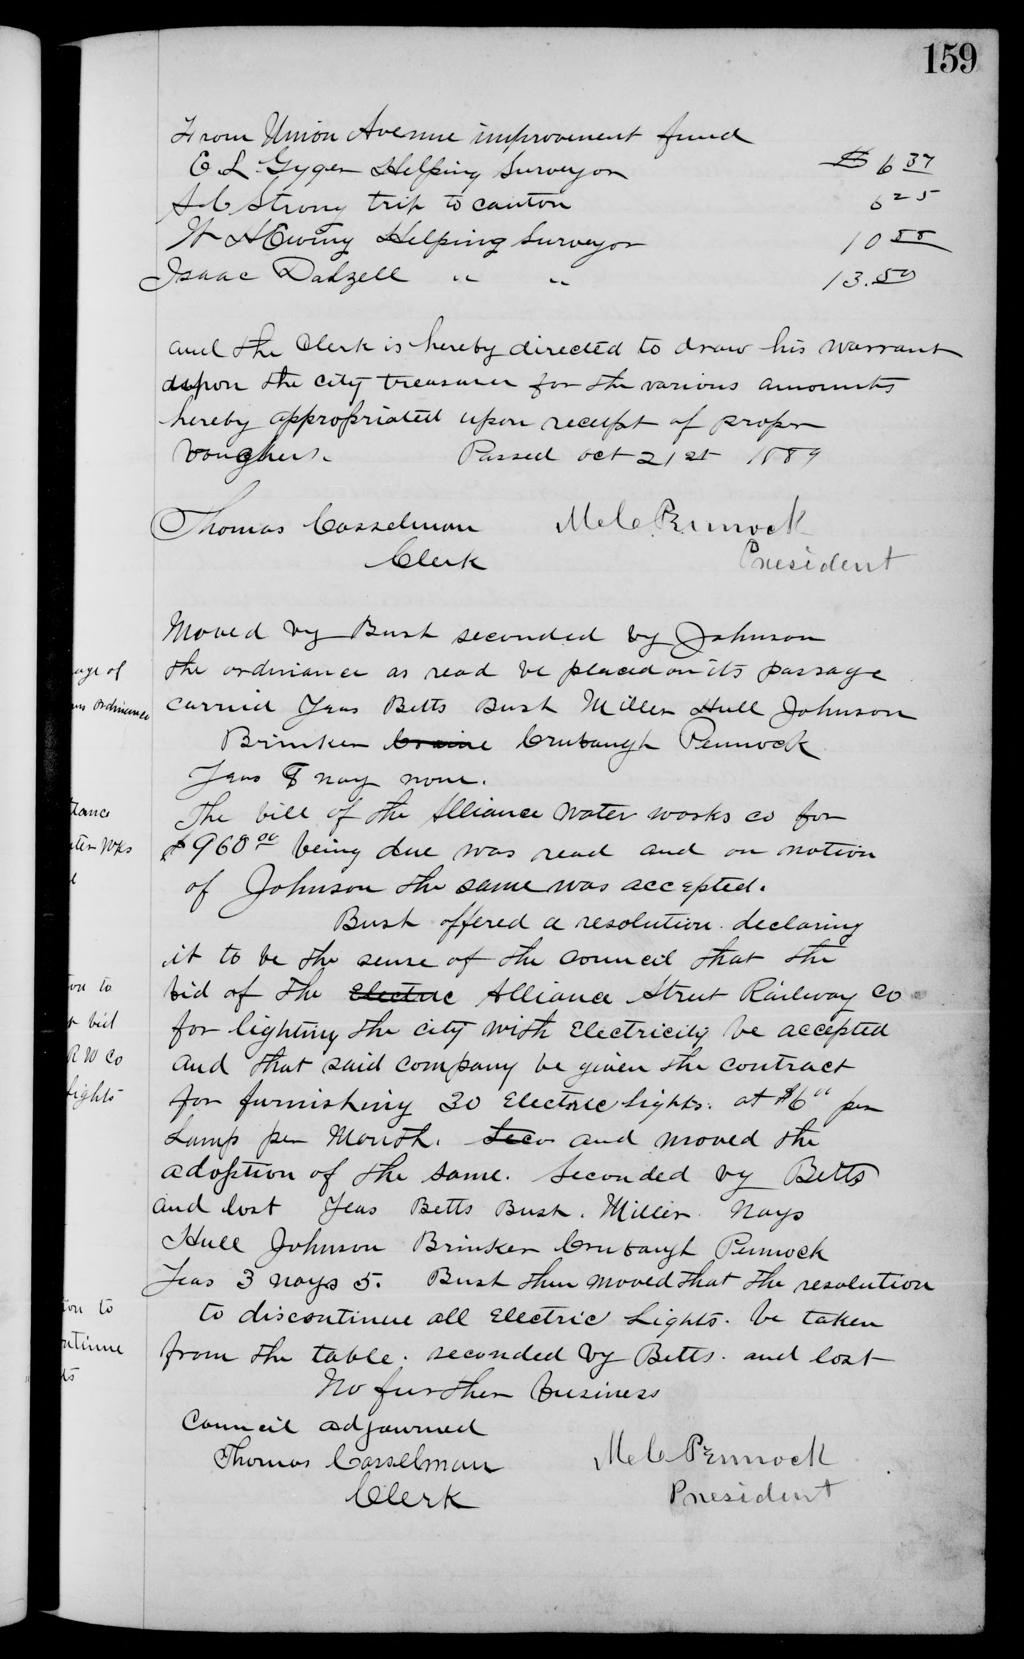 159
From Union Avenue improvement fund
E L Gyger Helping Surveyor $ 6 37
S C Strong trip to canton 6 25
W H Ewing Helping Surveyor 10 88
Isaac Dalzell " " 13.50
and the Clerk is hereby directed to draw his warrant
upon the city treasurer for the various amounts
hereby appropriated upon receipt of proper
vouchers. Passed Oct 21st 1889
Thomas Casselman M C Pennock
Clerk President
Moved by Bush seconded by Johnson
the ordinance as read be placed on its passage
carried Yeas Betts Bush Miller Hull Johnson
Brinker Craine Crubaugh Pennock
Yeas 8 nay none.
The bill of the Alliance Water works co for
$960 00 being due was read and on motion
of Johnson the same was accepted.
Bush offered a resolution declaring
it to be the sense of the council that the
bid of the Electric Alliance Street Railway Co
for lighting the city with Electricity be accepted
and that said company be given the contract
for furnishing 30 Electric Lights. at $6 00 per
Lamp per Month. Seco and moved the
adoption of the same. Seconded by Betts
and lost Yeas Betts Bush. Miller Nays
Hull Johnson Brinker Crubaugh Pennock
Yeas 3 nays 5. Bush then moved that the resolution
to discontinue all Electric Lights. be taken
from the table. seconded by Betts. and lost
No further business
Council adjourned
Thomas Casselman M C Pennock
Clerk President
age of
ordinance
ter Wks
on to
bid
R W Co
Lights
ion to
ntinue
ts